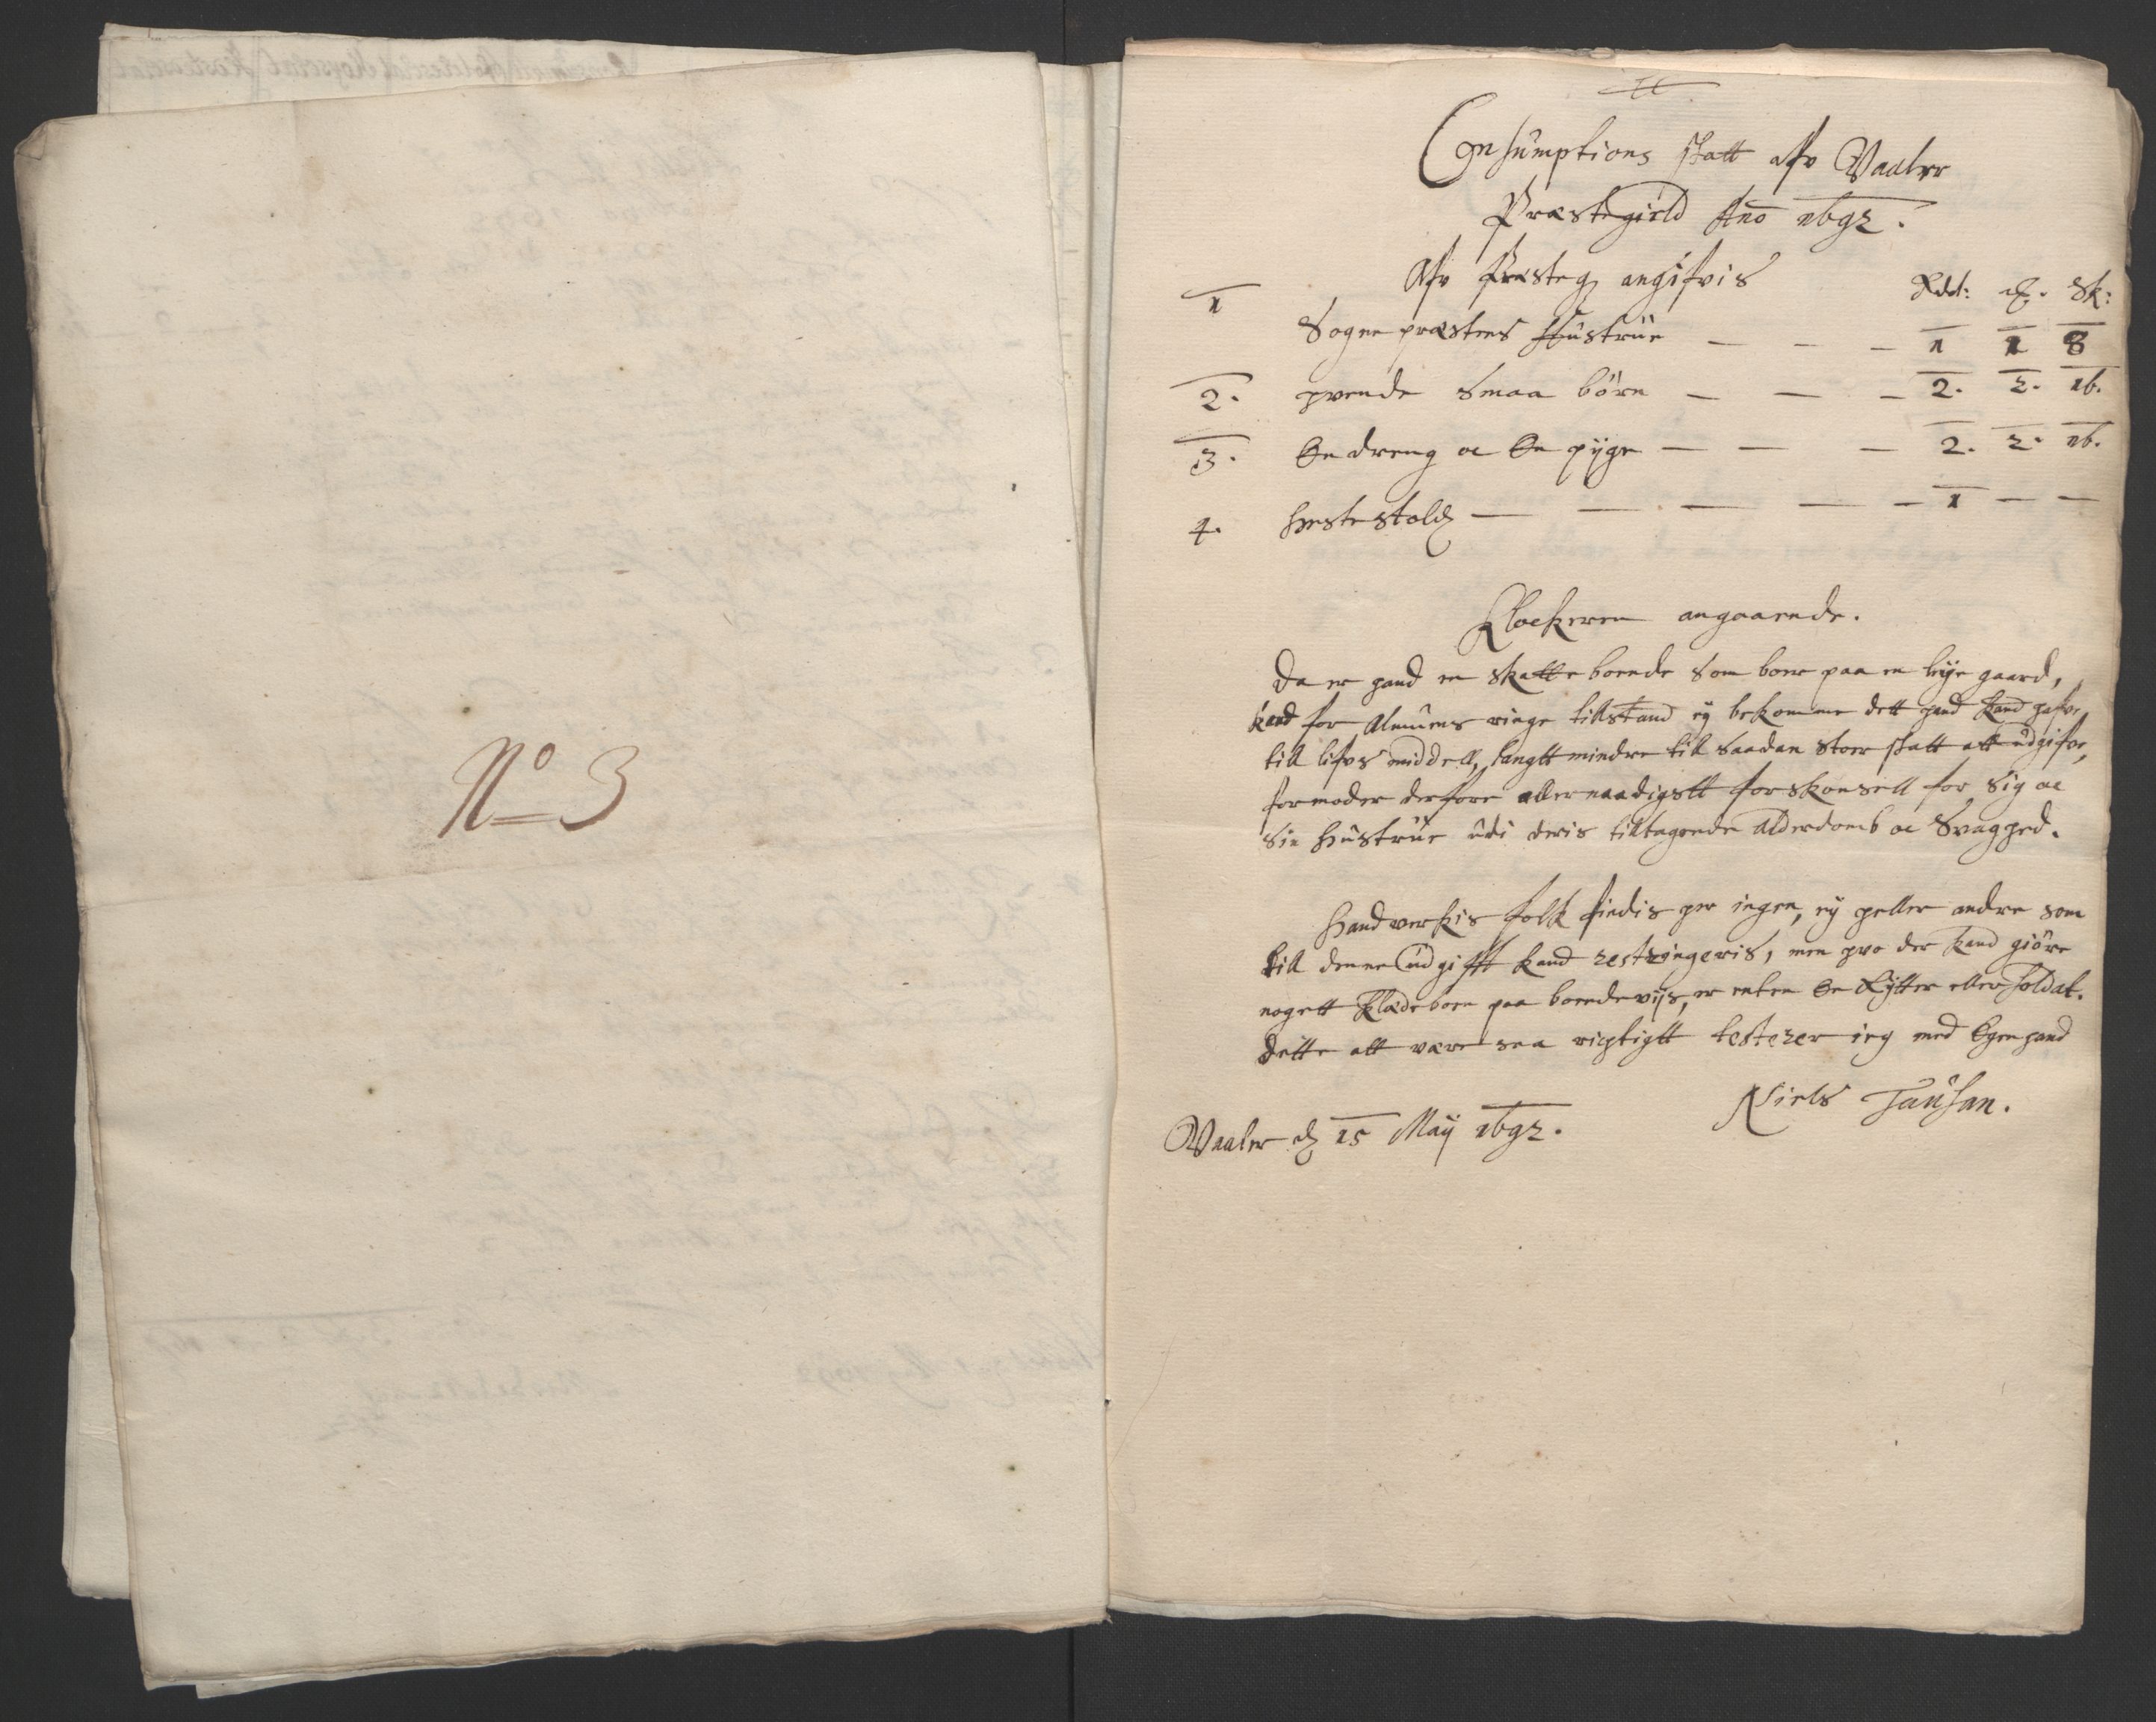 No 3
Consumptions skatt afv Vaaler
Præstegield Ano 1692.
Afv Præsteg angifvis
Rdl: Sk:
1 Sogne præstens Hustrüe — — — 1 1 8
2. hvende Smaa börn — — — 2. 2. 16.
3. En dreng oc En pÿge — — — 2. 2. 16.
4. Hestestold — — — — — 1 — —
Klockeren angaaende.
Da er hand en skatte bonde Som boer paa en leÿe gaard,
kand for Almuens ringe tillstand eÿ bekomme dett hand kand hafve
till lifvs middell, langtt mindre till saadan stoer skatt att udgifve,
formoder derfore allernaadigstt forskonsell for sig oc
Sin Hüstrüe udi deris tilltagende Alderdomb oc Svaghed.
Handverkis folk findis her ingen, eÿ heller andre som
till denne udgifft kand restringeris, men hvo der kand giöre
nogett klædeboen paa bondeviis, er enten En Rÿtter eller Soldat.
Dette att være saa rigtigtt testerer ieg med Egen hand
Niels Tausan.
Vaaler d 15 Maÿ 1692.